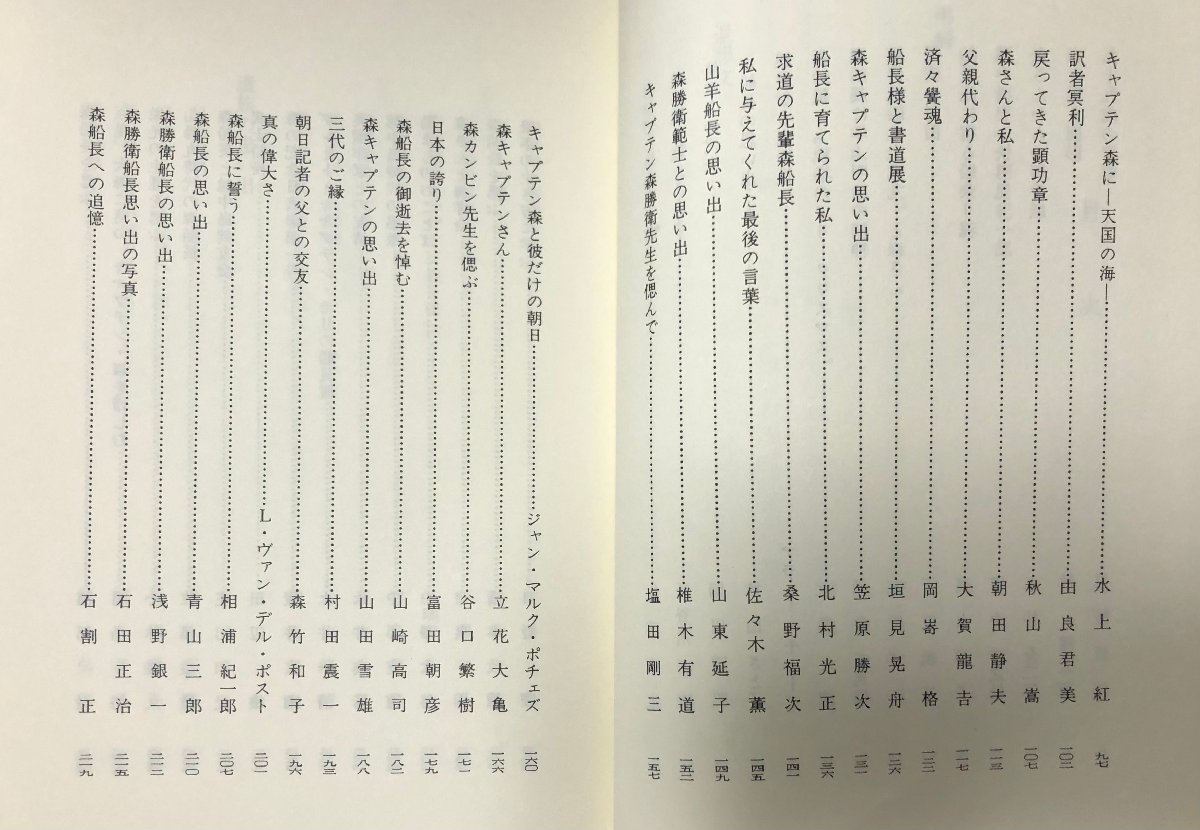 キャプテン森に―天国の海―……水上紅 九七
訳者冥利……由良君美 一〇二
戻ってきた顕功章……秋山嵩 一〇七
森さんと私……朝田静夫 一一三
父親代わり……大賀龍吉 一一七
済々黌魂……岡嵜格 一二二
船長様と書道展……垣見晃舟 一二六
森キャプテンの思い出……笠原勝次 一三一
船長に育てられた私……北村光正 一三六
求道の先輩森船長……桑野福次 一四一
私に与えてくれた最後の言葉……佐々木薫 一四五
山羊船長の思い出……山東延子 一四九
森勝衛範士との思い出……椎木有道 一五二
キャプテン森勝衛先生を偲んで……塩田剛三 一五七
キャプテン森と彼だけの朝日……ジャン・マルク・ポチェズ 一六〇
森キャプテンさん……立花大亀 一六六
森カンビン先生を偲ぶ……谷口繁樹 一七一
日本の誇り……富田朝彦 一七九
森船長の御逝去を悼む……山崎高司 一八二
森キャプテンの思い出……山田雪雄 一八八
三代のご縁……村田震一 一九三
朝日記者の父との交友……森竹和子 一九六
真の偉大さ……L・ヴァン・デル・ポスト 二〇一
森船長に誓う……相浦紀一郎 二〇七
森船長の思い出……青山三郎 二一〇
森勝衛船長の思い出……浅野銀一 二一三
森勝衛船長思い出の写真……石田正治 二一五
森船長への追憶……石割正 二一九